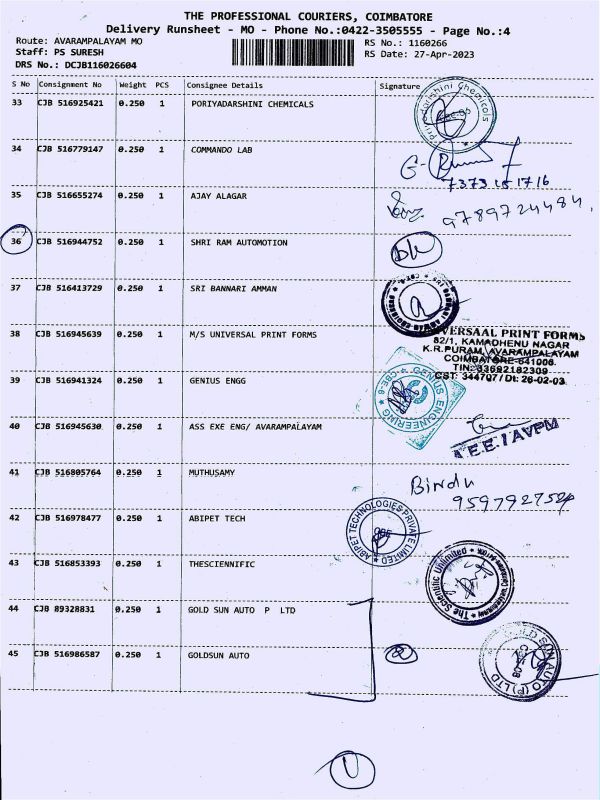 THE PROFESSIONAL COURIERS, COIMBATORE
Delivery Runsheet - MO - Phone No.:0422-3505555 - Page No.:4
Route: AVARAMPALAYAM MO
RS No.: 1160266
Staff: PS SURESH
RS Date: 27-Apr-2023
DRS No.: DCJB116026604
S No Consignment No Weight PCS Consignee Details Signature
33 CJB 516925421 0.250 1 PORIYADARSHINI CHEMICALS
Priyadarshini Chemicals
34 CJB 516779147 0.250 1 COMMANDO LAB
35 CJB 516655274 0.250 1 AJAY ALAGAR
9789724484,
36 CJB 516944752 0.250 1 SHRI RAM AUTOMOTION
37 CJB 516413729 0.250 1 SRI BANNARI AMMAN
38 CJB 516945639 0.250 1 M/S UNIVERSAL PRINT FORMS
VERSAAL PRINT FORMS
82/1, KAMADHENU NAGAR
K.R.PURAM, AVARAMPALAYAM
COIMBATORE-641006.
TIN: 33692182309
CST: 344707/Dt: 26-02-03
39 CJB 516941324 0.250 1 GENIUS ENGG
GENIUS ENGINEERING
CBE-6
40 CJB 516945630 0.250 1 ASS EXE ENG/ AVARAMPALAYAM
A.E.E./AVPM
41 CJB 516805764 0.250 1 MUTHUSAMY
Bindu
42 CJB 516978477 0.250 1 ABIPET TECH
ABIPET TECHNOLOGIES PRIVATE LIMITED
43 CJB 516853393 0.250 1 THESCIENNIFIC
The Scientific Unlimited
44 CJB 89328831 0.250 1 GOLD SUN AUTO P LTD
45 CJB 516986587 0.250 1 GOLDSUN AUTO
GOLD SUN AUTO (P) LTD